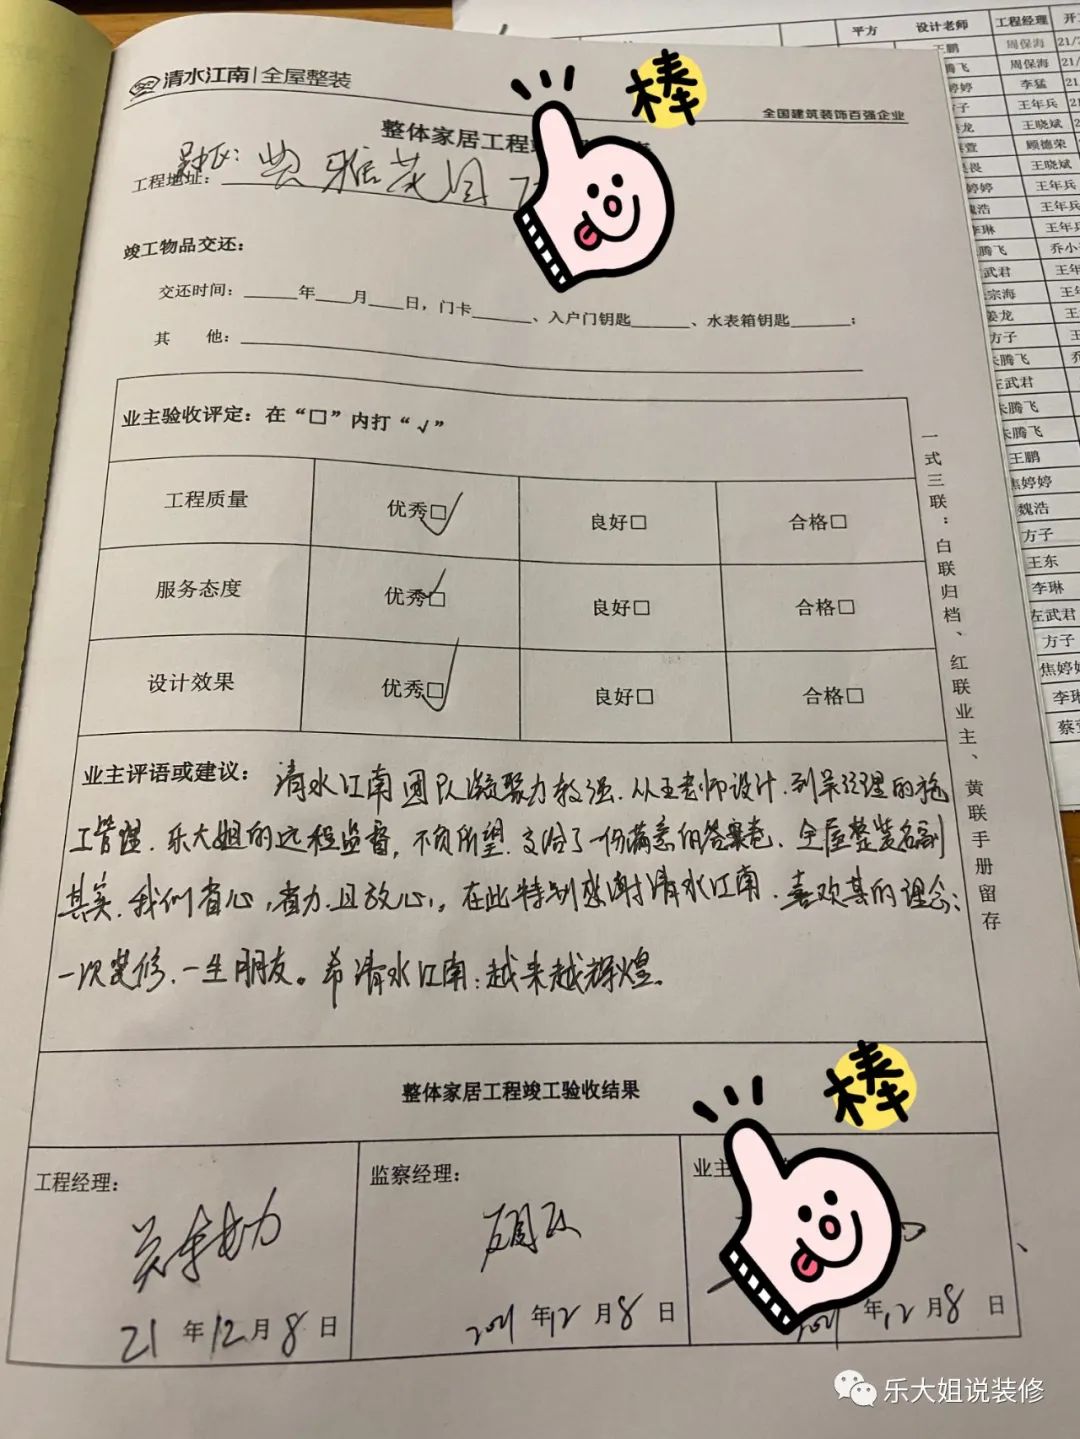 清水江南 | 全屋整装
全国建筑装饰百强企业
棒
整体家居工程
工程地址:
竣工物品交还:
交还时间:______年____月____日, 门卡______、入户门钥匙______、水表箱钥匙______;
其 他:
业主验收评定: 在“□”内打“√”
工程质量 优秀□√ 良好□ 合格□
服务态度 优秀□√ 良好□ 合格□
设计效果 优秀□√ 良好□ 合格□
一式三联:白联归档、红联业主、黄联手册留存
业主评语或建议: 清水江南团队凝聚力较强.从王老师设计.到吴经理的施
工管理.乐大姐的远程监督,不负所望.交给了一份满意的答案卷、全屋整装名副
其实.我们省心,省力.且放心,。在此特别感谢清水江南.喜欢其的理念:
一次装修.一生朋友。希清水江南:越来越辉煌。
整体家居工程竣工验收结果
棒
工程经理: 监察经理: 业主
21年12月8日 2021年12月8日 2021年12月8日
平方 设计老师 工程经理 开工
王鹏 周保海 21/
腾飞 周保海 21/
婷婷 李猛 21
方子 王年兵
姜龙 王晓斌
蔡萱 顾德荣
王晓斌
婷婷 王年兵
魏浩 王年兵
李琳 王年兵
腾飞 乔小
武君 王年
宗海 王年
姜龙 王
方子 王
朱腾飞 乔
左武君
朱腾飞
朱腾飞
王鹏
焦婷婷
魏浩
方子
王东
李琳
左武君
方子
焦婷婷
李琳
蔡萱
乐大姐说装修